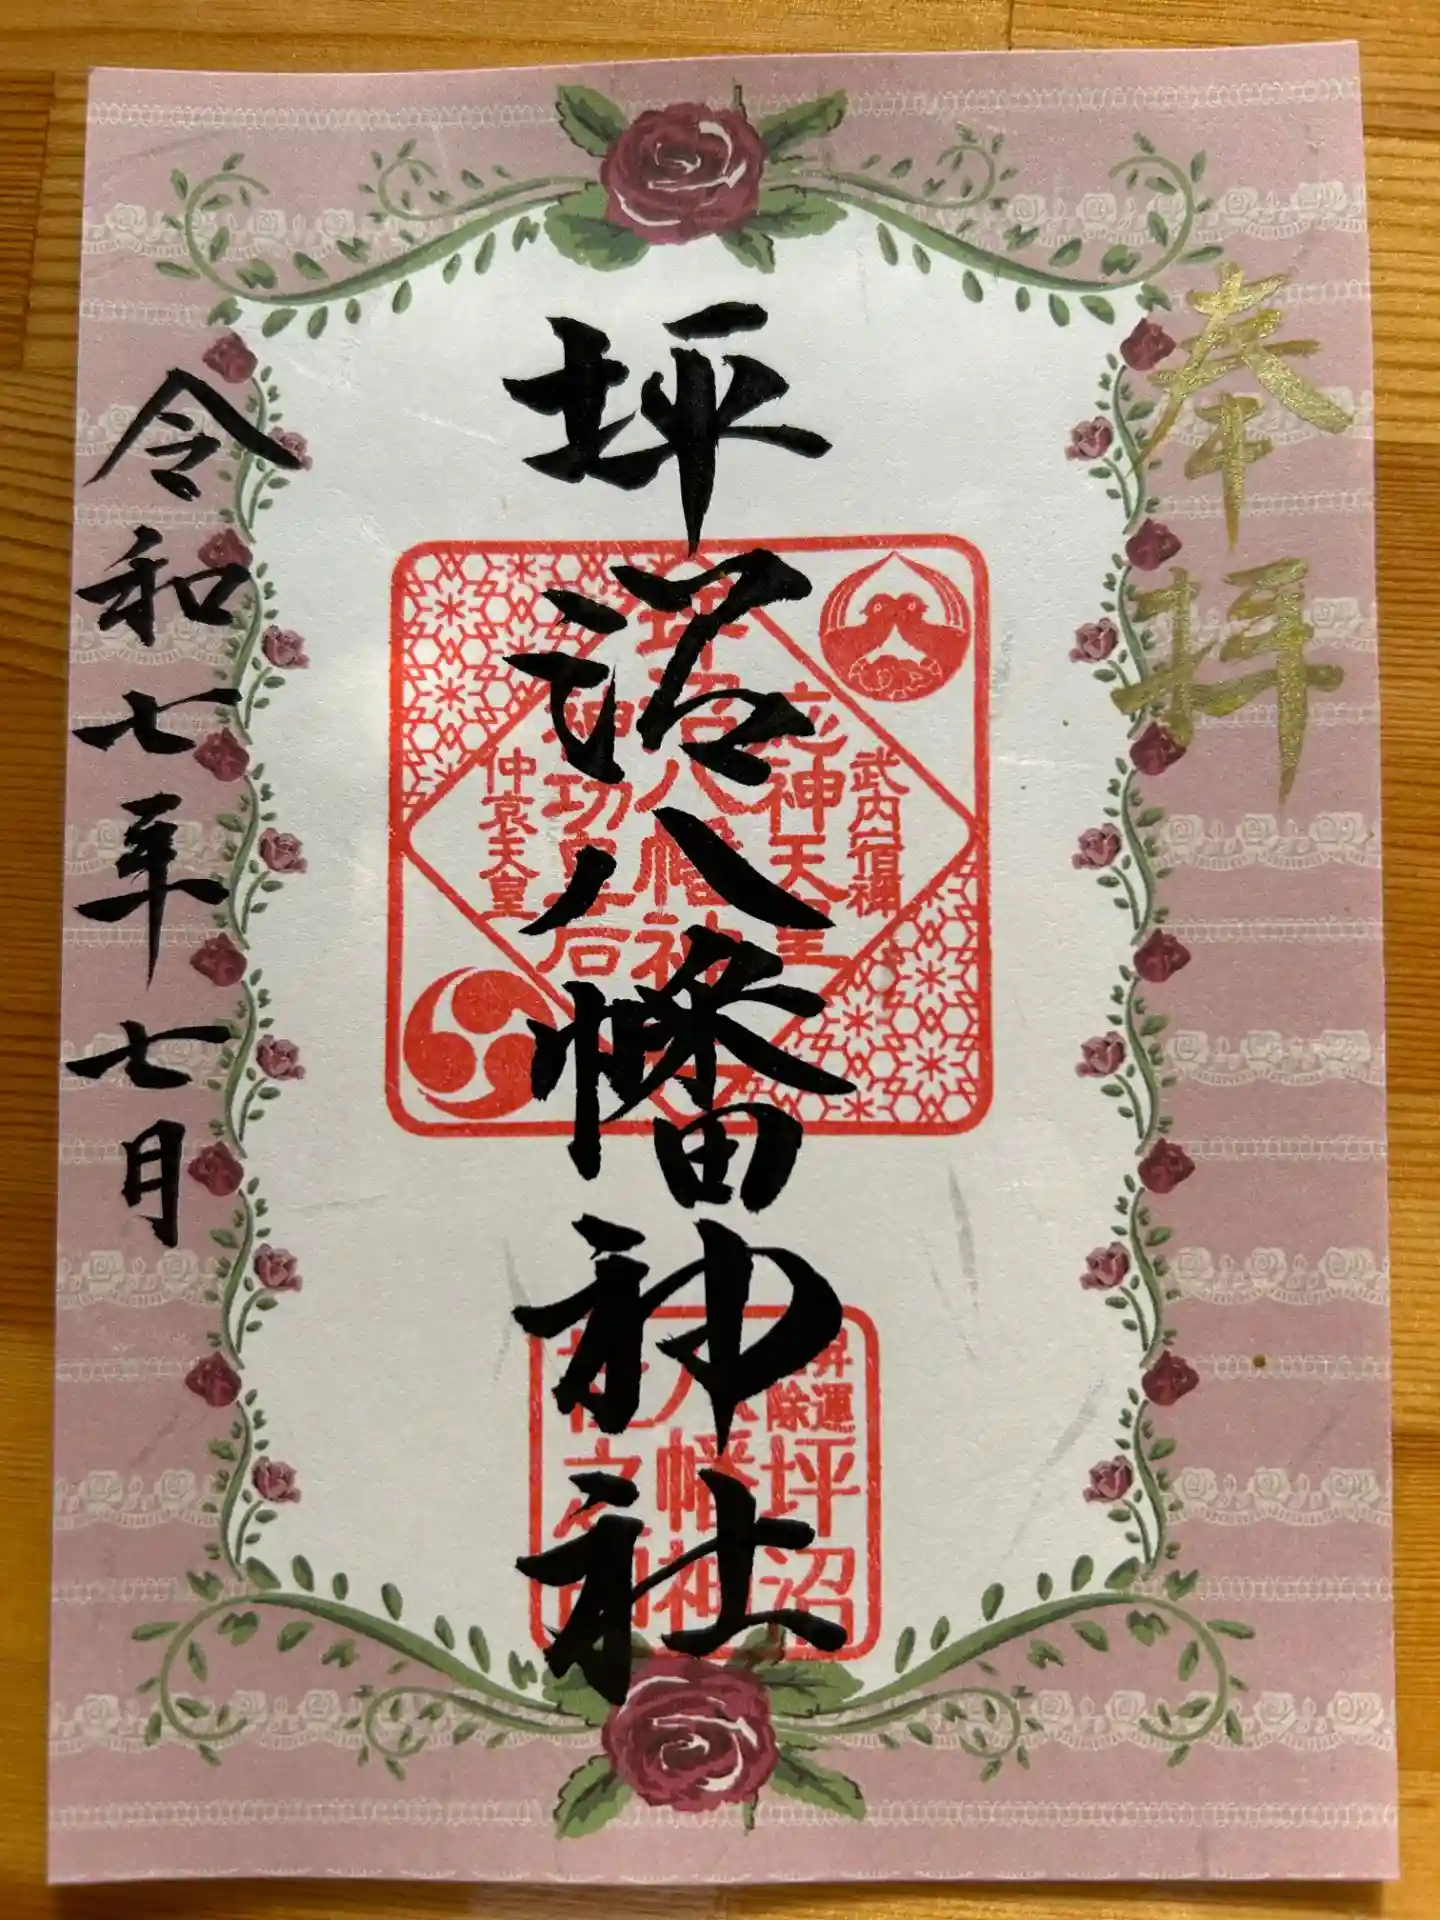 奉拝
坪沼八幡神社
令和七年七月
武内宿禰
応神天皇
坪沼八幡神
神功皇后
仲哀天皇
昇運
除
坪沼
八幡神
之